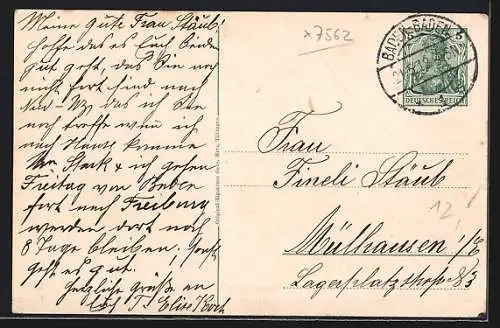 Meine gute Frau Stäub!
hoffe das es Euch beiden
gut geht, das Sie noch
nicht fort sind nach
das ich Sie
noch treffe wenn ich
nach Hause komme
& ich gehen
Freitag von Baden
fort nach Freiburg
werden dort noch
8 Tage bleiben, sonst
geht es gut.
Herzliche Grüsse an
Elise
x7562
BADEN-BADEN
DEUTSCHES REICH
Frau
Fineli Stäub
12,
Mülhausen i/E
Lagerplatzstraße 83